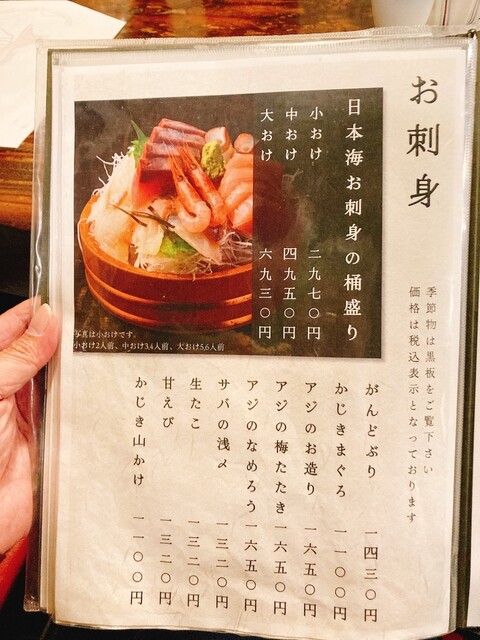 お刺身
季節物は黒板をご覧下さい
価格は税込表示となっております
日本海お刺身の桶盛り
小おけ 二九七〇円
中おけ 四九五〇円
大おけ 六九三〇円
写真は小おけです。
小おけ2人前、中おけ3,4人前、大おけ5,6人前
がんどぶり 一四三〇円
かじきまぐろ 一一〇〇円
アジのお造り 一六五〇円
アジの梅たたき 一六五〇円
アジのなめろう 一六五〇円
サバの浅〆 一三二〇円
生たこ 一三二〇円
甘えび 一三二〇円
かじき山かけ 一一〇〇円